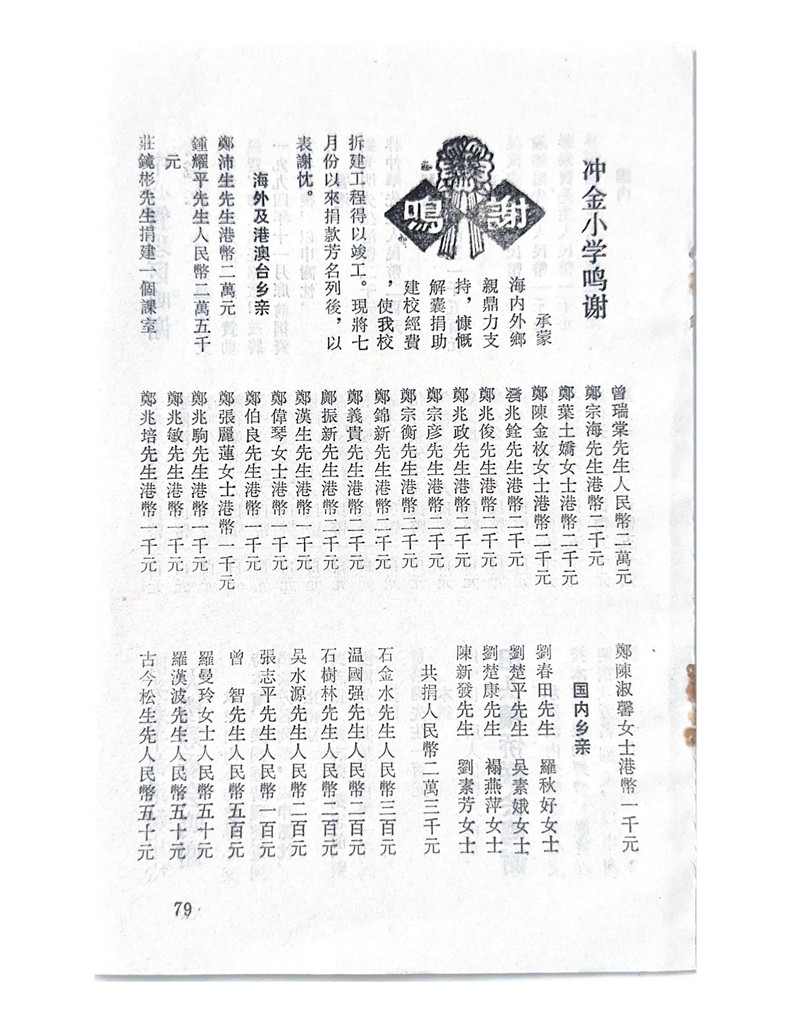 冲金小学鸣谢
鳴謝
承蒙
海內外鄉
親鼎力支
持，慷慨
解囊捐助
建校經費
，使我校
拆建工程得以竣工。現將七
月份以來捐款芳名列後，以
表謝忱。
海外及港澳台乡亲
鄭沛生先生港幣二萬元
鍾耀平先生人民幣二萬五千
元
莊鏡彬先生捐建一個課室
曾瑞棠先生人民幣二萬元
鄭宗海先生港幣二千元
鄭葉土嬌女士港幣二千元
鄭陳金枚女士港幣二千元
兆銓先生港幣二千元
鄭兆俊先生港幣二千元
鄭兆政先生港幣二千元
鄭宗彦先生港幣二千元
鄭宗衡先生港幣二千元
鄭錦新先生港幣二千元
鄭義貴先生港幣二千元
鄺振新先生港幣二千元
鄭漢生先生港幣一千元
鄭偉琴女士港幣一千元
鄭伯良先生港幣一千元
鄭張麗蓮女士港幣一千元
鄭兆駒先生港幣一千元
鄭兆敏先生港幣一千元
鄭兆培先生港幣一千元
鄭陳淑馨女士港幣一千元
国内乡亲
劉春田先生　羅秋好女士
劉楚平先生　吳素娥女士
劉楚康先生　禤燕萍女士
陳新發先生　劉素芳女士
共捐人民幣二萬三千元
石金水先生人民幣三百元
温國强先生人民幣二百元
石樹林先生人民幣二百元
吴水源先生人民幣二百元
張志平先生人民幣一百元
曾　智先生人民幣五百元
羅曼玲女士人民幣五十元
羅漢波先生人民幣五十元
古今松生先人民幣五十元
79